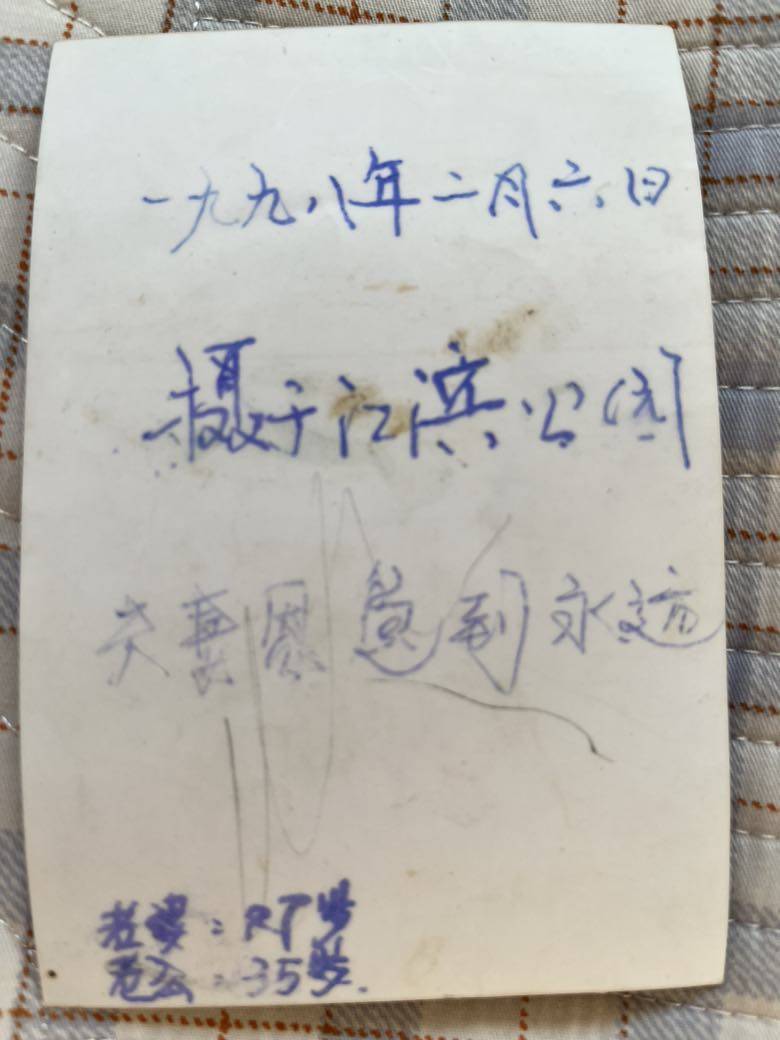 一九九八年二月六日
摄于江滨公园
夫妻恩恩到永远
老婆:27岁
老公:35岁.